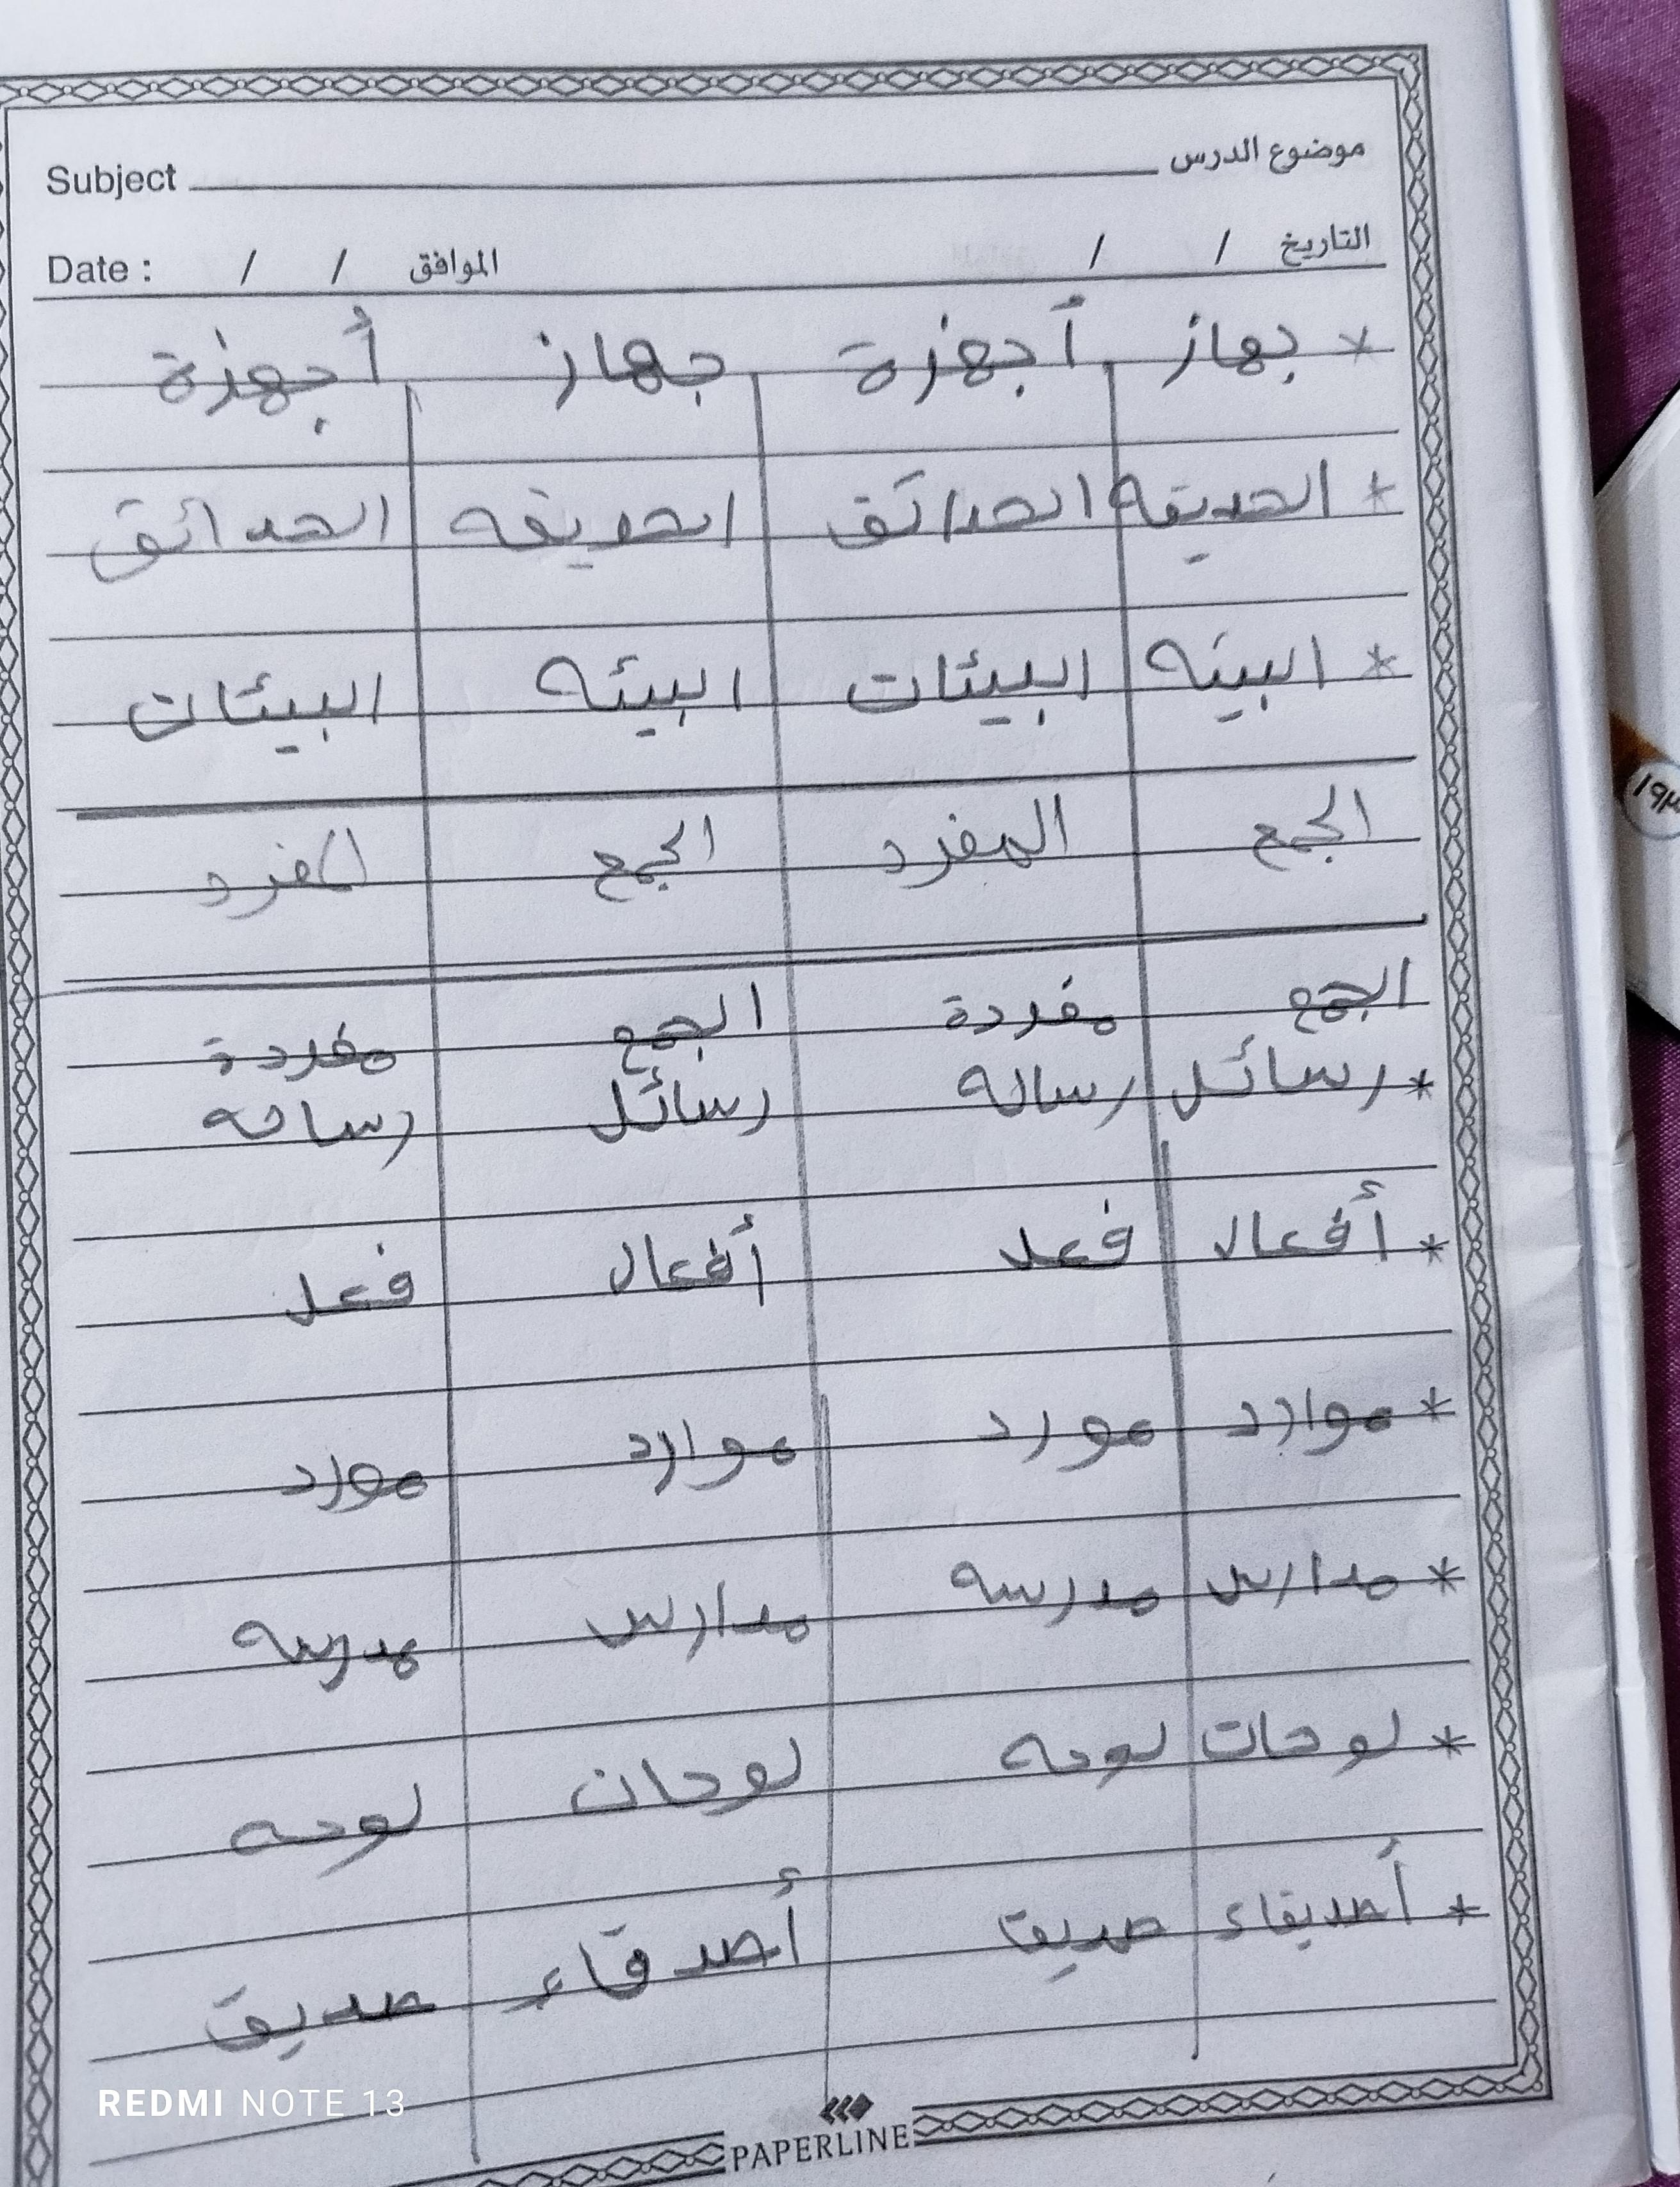 Subject موضوع الدرس
Date : / / الموافق / / التاريخ
* جهاز أجهزة جهاز أجهزة
* الحديقه الحدائق الحديقه الحدائق
* البيئه البيئات البيئه البيئات
الجمع المفرد الجمع المفرد
الجمع مفردة الجمع مفردة
* رسائل رساله رسائل رساله
* أفعال فعل أفعال فعل
* موارد مورد موارد مورد
* مدارس مدرسه مدارس مدرسه
* لوحات لوحه لوحات لوحه
* أصديقاء صديق أصدقاء صديق
REDMI NOTE 13
PAPERLINE